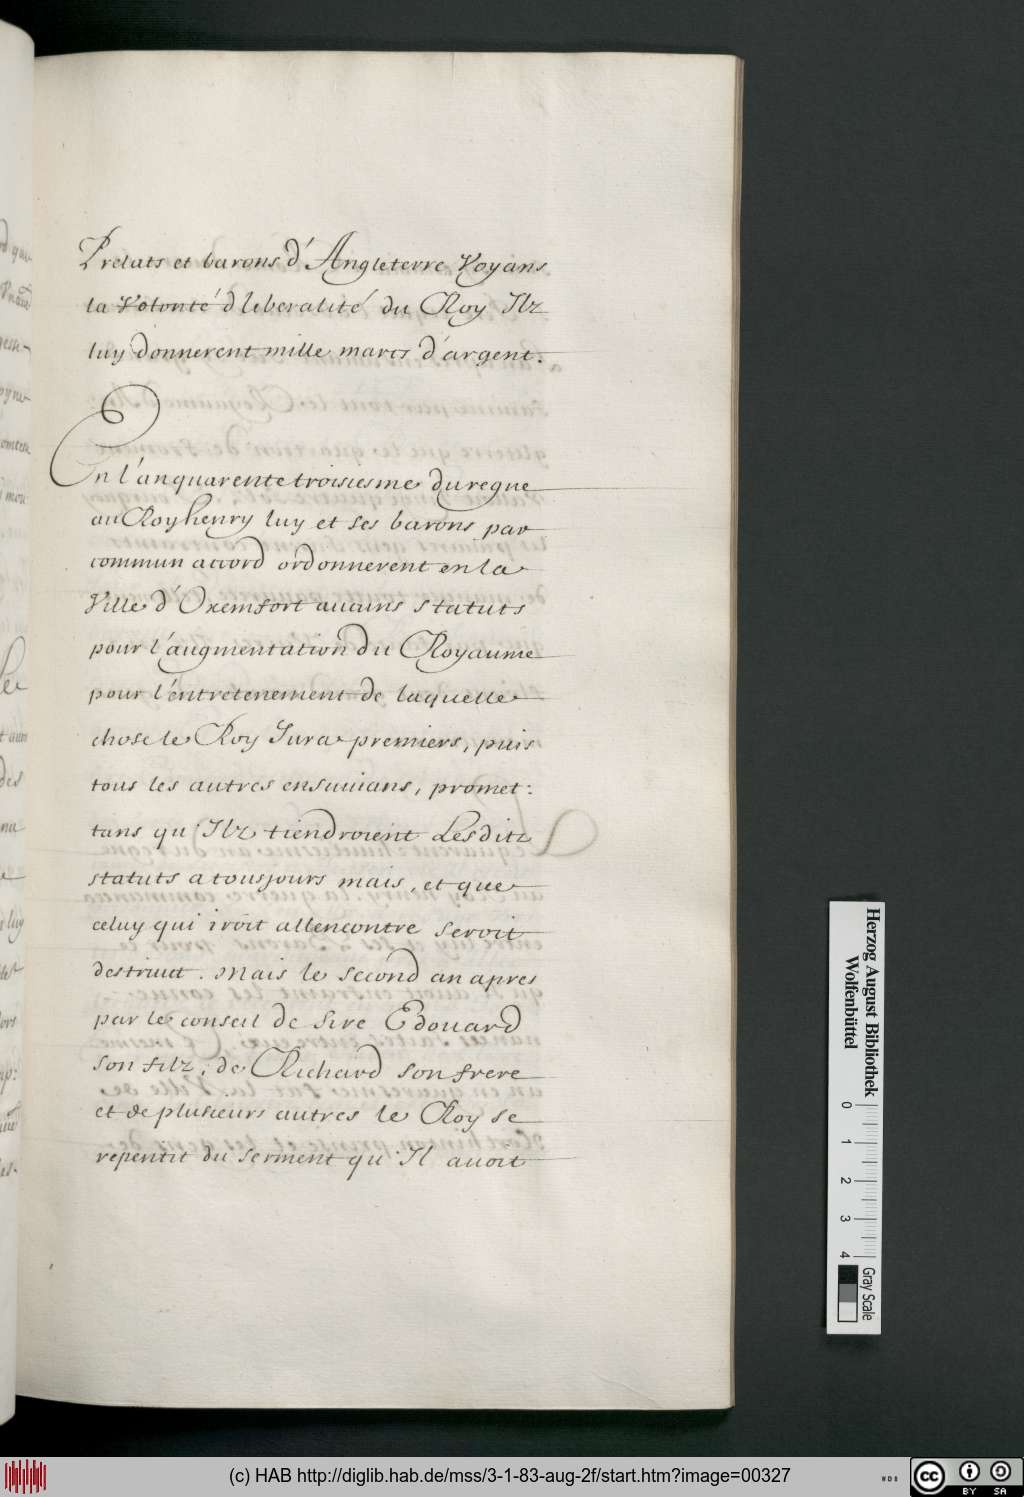 Prelats et barons d'Angleterre Voyans
la Volonté d liberalité du Roy Ilz
luy donnerent mille marcs d'argent.
En l'an quarente troisiesme du regne
au Roy henry luy et ses barons par
commun accord ordonnerent en la
Ville d'Oxemfort aucuns statuts
pour l'augmentation du Royaume
pour l'entretenement de laquelle
chose le Roy Jura premiers, puis
tous les autres ensuiuans, promet:
tans qu'Ilz tiendroient Lesditz
statuts a tousjours mais, et que
celuy qui iroit allencontre seroit
destruict. Mais le second an apres
par le conseil de sire Edouard
son filz, de Richard son frere
et de plusieurs autres le Roy se
repentit du serment qu'Il auoit
Herzog August Bibliothek
Wolfenbüttel
0 1 2 3 4
Gray Scale
(c) HAB http://diglib.hab.de/mss/3-1-83-aug-2f/start.htm?image=00327
cc BY SA